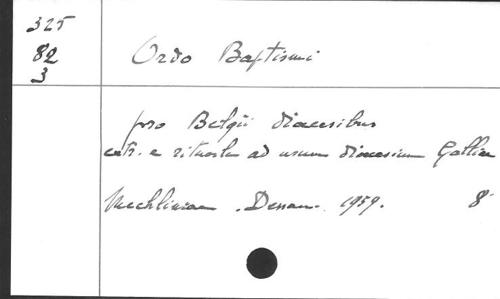 325
82
3
Ordo Baptismi
pro Belgii diocesibus
extr. e rituali ad usum diocesium Galliae
Mechliniae . Dessain . 1959. 8°